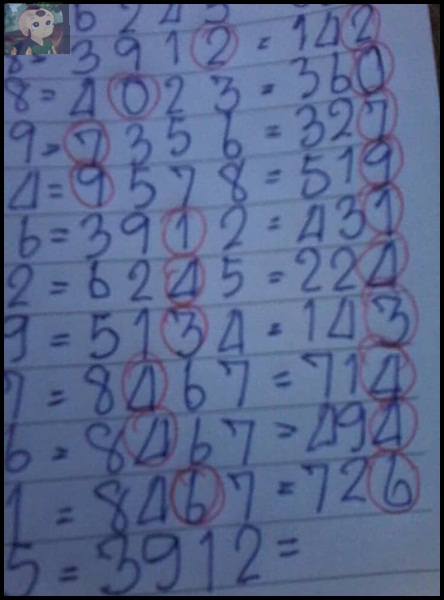 6 2 4 5
8= 3 9 1 2 = 142
8= 4 0 2 3 = 360
9= 7 3 5 6 = 327
4= 9 5 7 8 = 519
6= 3 9 1 2 = 431
2 = 6 2 4 5 = 224
9 = 5 1 3 4 = 143
7 = 8 4 6 7 = 714
6 = 8 4 6 7 = 494
1 = 8 4 6 7 = 726
5 = 3912 =